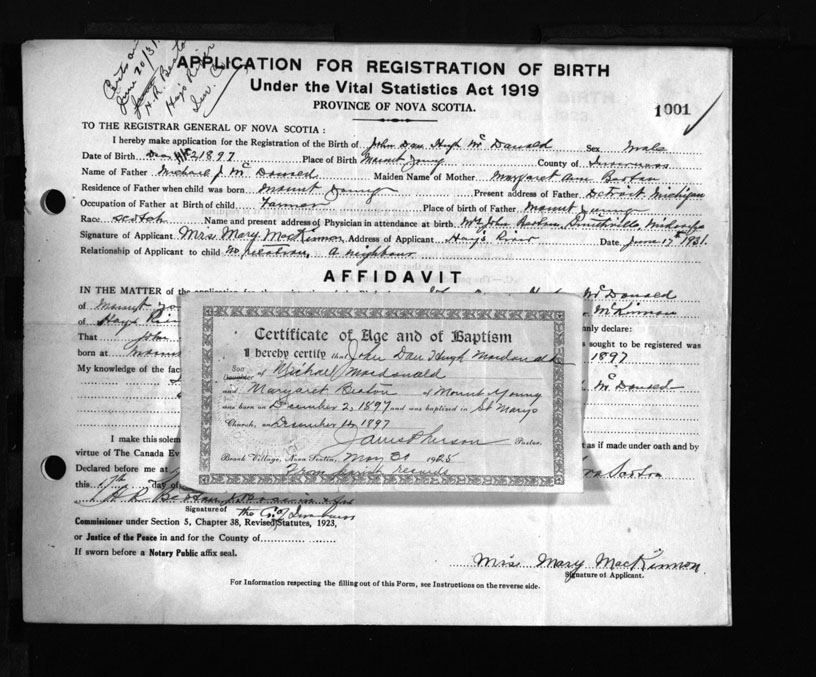 June 20/31
H. R. Beaton
Hays River
Inv. Co
APPLICATION FOR REGISTRATION OF BIRTH
Under the Vital Statistics Act 1919
PROVINCE OF NOVA SCOTIA.
1001
TO THE REGISTRAR GENERAL OF NOVA SCOTIA :
I hereby make application for the Registration of the Birth of John Dan Hugh McDonald Sex Male
Date of Birth Dec 2 1897 Place of Birth Mount Young County of Inverness
Name of Father Michael J. McDonald Maiden Name of Mother Margaret Ann Beaton
Residence of Father when child was born Mount Young Present address of Father Detroit Michigan
Occupation of Father at Birth of child Farmer Place of birth of Father Mount Young
Race Scotch Name and present address of Physician in attendance at birth Mrs John Beaton, Smithville,
Signature of Applicant Mrs Mary MacKinnon Address of Applicant Hay's River Date June 17th 1931.
Relationship of Applicant to child No relation, a neighbour
AFFIDAVIT
IN THE MATTER of the McDonald
of Mount McKinnon
of Hays nly declare:
That John sought to be registered was
born at 1897
My knowledge of the fac McDonald
I make this solem as if made under oath and by
virtue of The Canada Ev
Declared before me at
this 17th day of
H R Beaton
Signature of
Commissioner under Section 5, Chapter 38, Revised Statutes, 1923,
or Justice of the Peace in and for the County of
If sworn before a Notary Public affix seal.
Mrs Mary MacKinnon
Signature of Applicant.
For Information respecting the filling out of this Form, see Instructions on the reverse side.
Certificate of Age and of Baptism
I hereby certify that John Dan Hugh Macdonald
Son
Daughter of Michael Macdonald
and Margaret Beaton of Mount Young
was born on December 2, 1897 and was baptised in St Mary's
Church, on December 1897
Pastor.
Brook Village, Nova Scotia, May 1925
From parish records